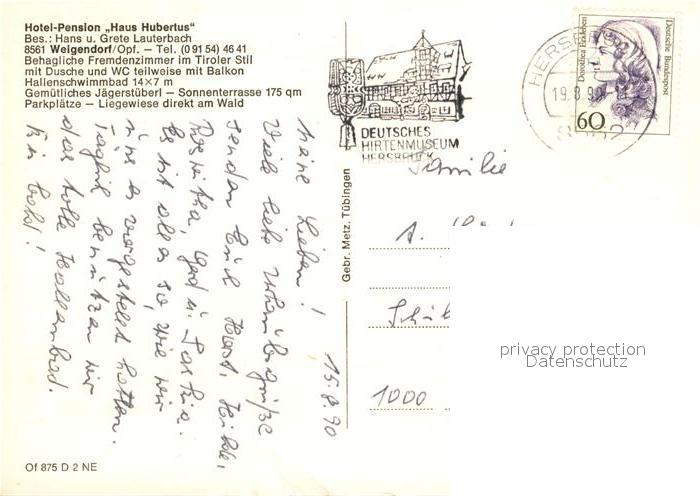 Hotel-Pension „Haus Hubertus"
Bes.: Hans u. Grete Lauterbach
8561 Weigendorf/Opf. — Tel. (0 91 54) 46 41
Behagliche Fremdenzimmer im Tiroler Stil
mit Dusche und WC teilweise mit Balkon
Hallenschwimmbad 14×7 m
Gemütliches Jägerstüberl — Sonnenterrasse 175 qm
Parkplätze — Liegewiese direkt am Wald
DEUTSCHES
HIRTENMUSEUM
HERSBRUCK
HERSBRUCK
19.8.90
Dorothea Erxleben
Deutsche Bundespost
60
15.8.90
Meine Lieben!
Viele liebe Urlaubsgrüße
senden Euch Horst,
Roswitha, Gerd u. Saskia.
Es ist alles so, wie wir
uns es vorgestellt hatten.
Täglich benutzen wir
das tolle Hallenbad.
Bis bald!
Gebr. Metz, Tübingen
Familie
A.
1000
Of 875 D 2 NE
privacy protection
Datenschutz